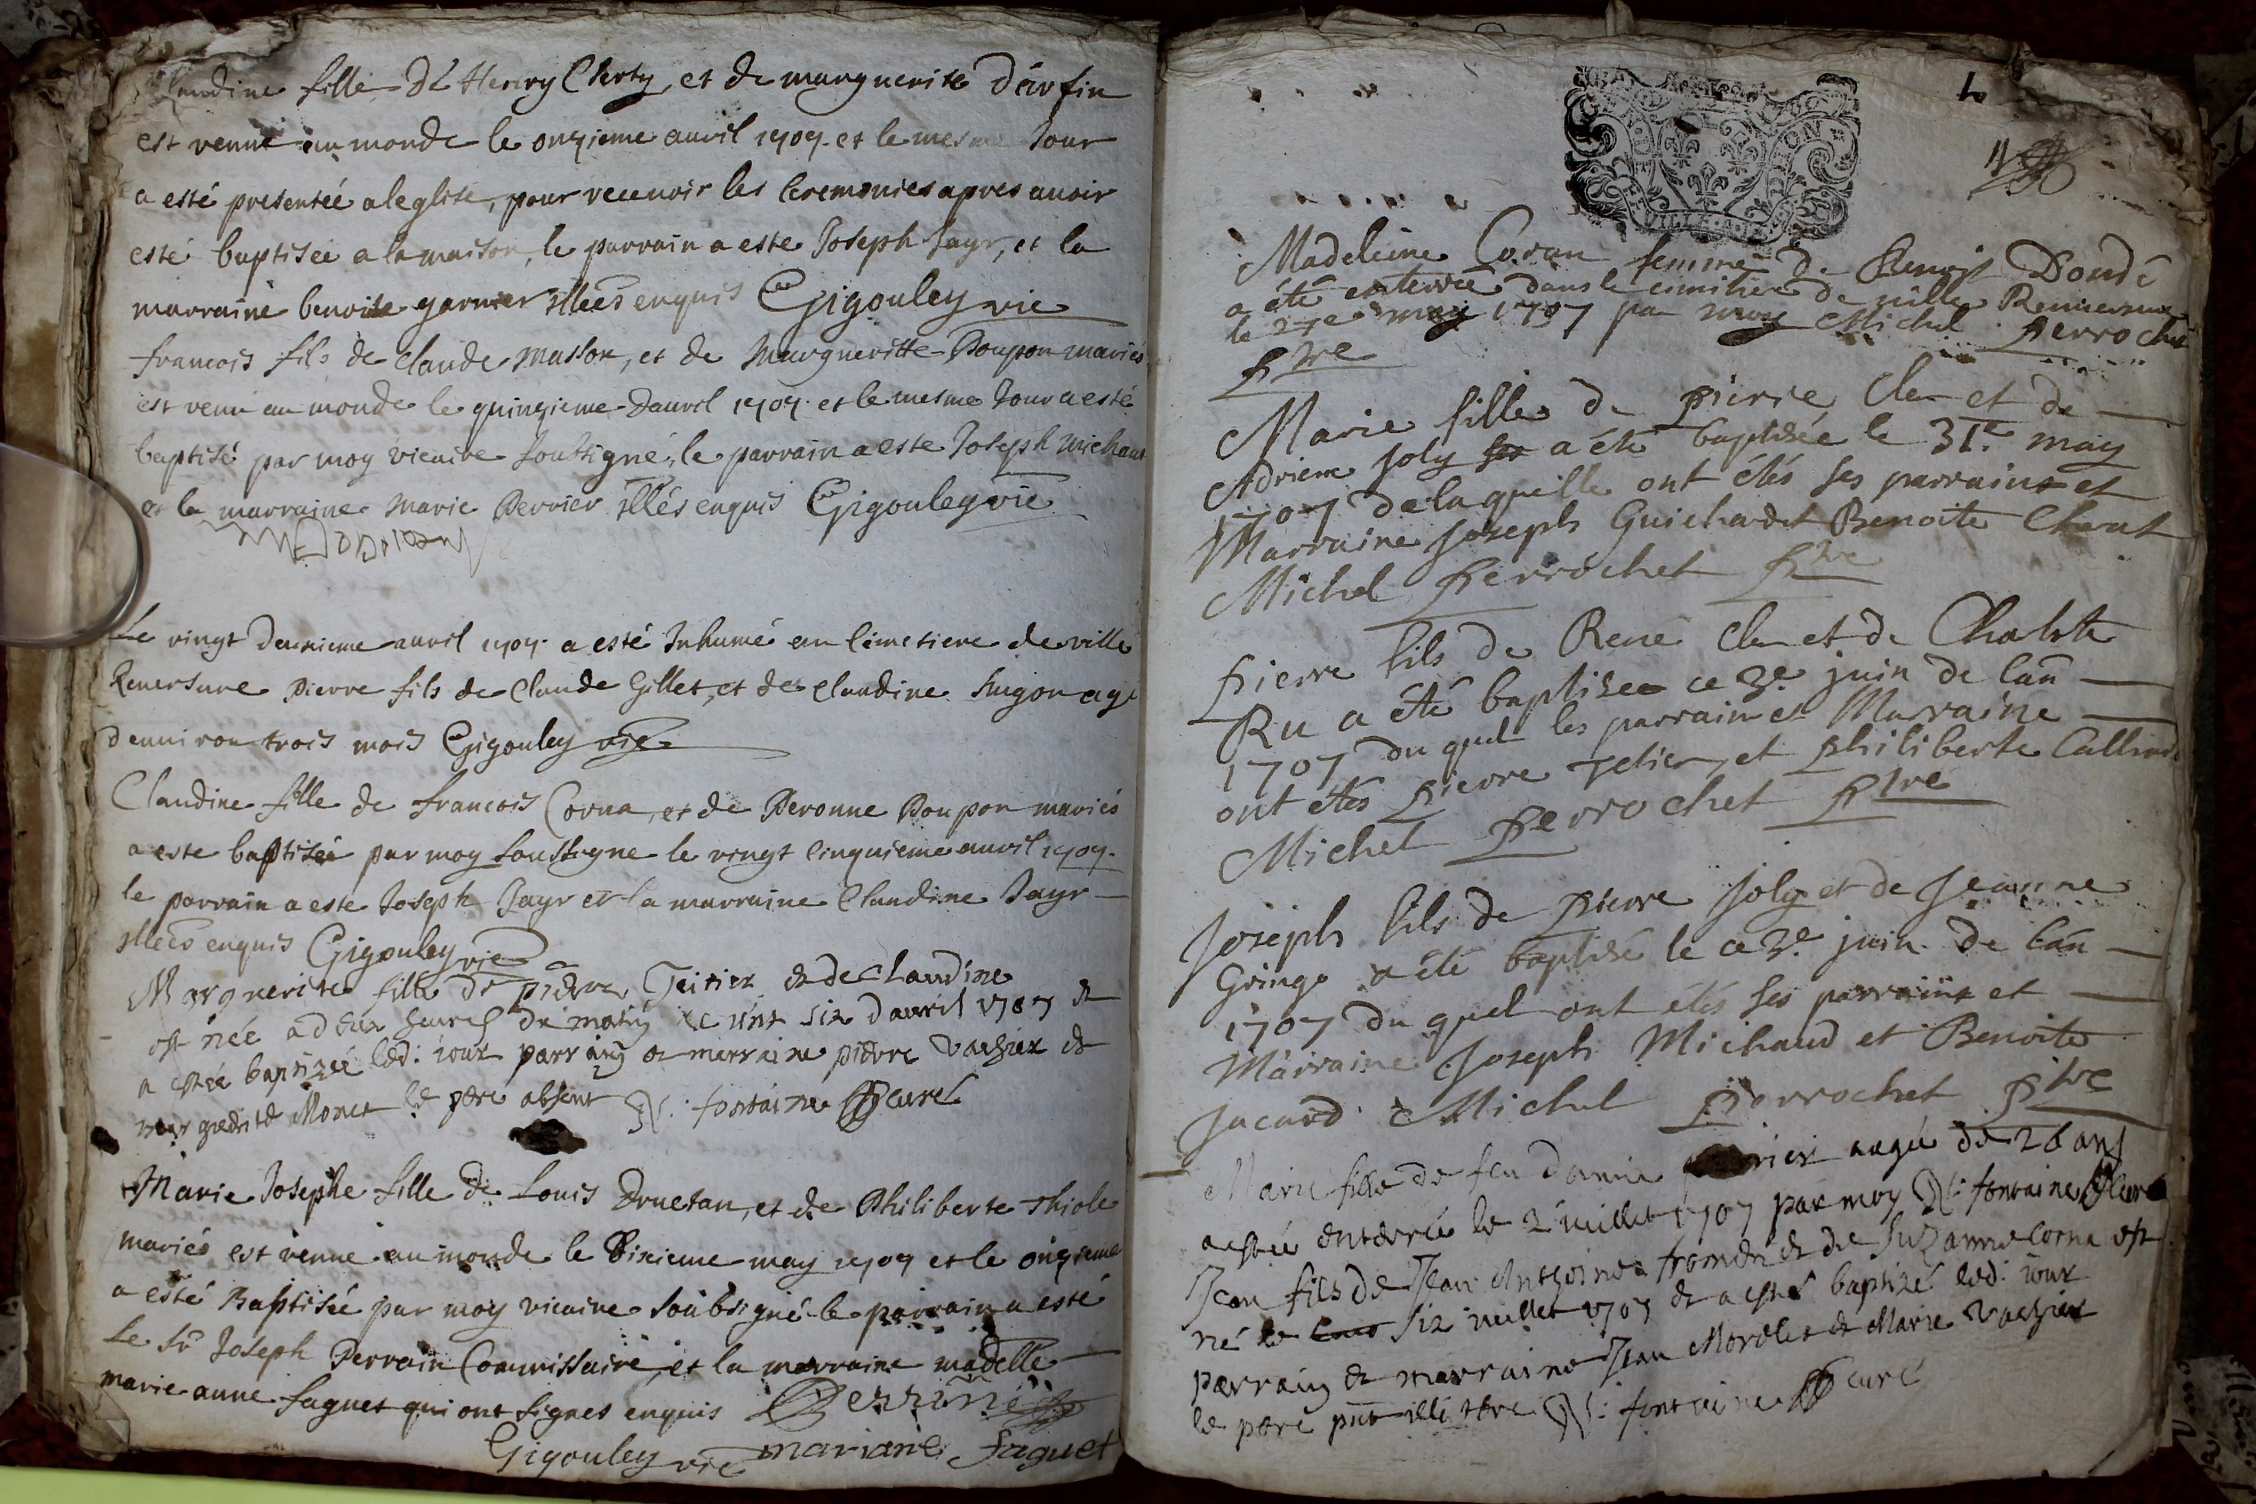 Claudine fille De Henry Cherty et de marguerite Darfin
est venue au monde le onzieme auril 1707 et le mesme Jour
a esté presenteé a leglise, pour receuoir les ceremonies apres auoir
esté baptiseé a la maison, le parrain a este Joseph Jayr, et la
marraine benoite garnier enquis Gigouley vic
francois fils de Claude Masson, et de Margueritte Poupon mariés
est venu au monde le quinzieme Dauril 1707 et le mesme Jour a esté
baptisé par moy vicaire soussigné, le parrain a este Joseph Michaud
et la marraine Marie Perrier illés enquis Gigouley vic
Le vingt deuxieme auril 1707 a esté Inhumé au cimetiere de ville
Reuersure Pierre fils de Claude Gillet, et de Claudine Hugon agé
denuiron trois mois Gigouley vic
Claudine fille de francois Corna, et de Peronne Poupon mariés
a este baptiseé par moy soussigne le vingt cinquieme auril 1707
le parrain a este Joseph Jayr et la marraine Claudine Jayr
enquis Gigouley vic
Marguerite fille de pierre Teitier et de claudine
est née a deux heures du matin le vint six dauril 1707 et
a estée baptizeé led: iour parrain et marraine pierre vachier et
marguerite Monet le pere absent N: fontaine curé
Marie Josephe fille de Louis Druetan, et de Philiberte Thiole
mariés est venue au monde le Dixieme may 1707 et le onzieme
a esté Baptiseé par moy vicaire soubsigné le parrain a esté
Le Sr Joseph Perrain Commissaire, et la marraine madelle
marie anne faguet qui ont signes enquis
Gigouley vic mariane faguet
Madeleine Coran femme de Benoit Dondé
a été enterrée dans le cimitiere de ville Renuersure
le 27e may 1707 par moy Michel Perrochet
Ptre
Marie fille de pierre Cler et de
Adriene Joly a été baptisée le 31e may
1707 de laquelle ont étés ses parrain et
Marraine Joseph Guichard et Benoite Cherat
Michel Perrochet Ptre
Pierre fils de René Cler et de Charlote
Ru a été baptisee ce 3e juin de lan
1707 du quel les parrain et Marraine
ont étés Pierre Tetier, et Philiberte
Michel Perrochet Ptre
Joseph fils de Pierre Joly et de Jeanne
Gringe a été baptisé le ce 3e juin de lan
1707 du quel ont étés ses parrain et
Marraine Joseph Michaud et Benoite
Jacard Michel Perrochet Ptre
Marie fille de feu aagée de 26 ans
a estée enterrée le 2 iuillet 1707 par moy N: fontaine Curé
Jean fils de Jean Anthoine froment et de Suzanne Corna est
né le six iuillet 1707 et a esté baptizé led: iour
parrain et marraine Jean Morelet et Marie vachier
le pere pnt illitere N: fontaine curé